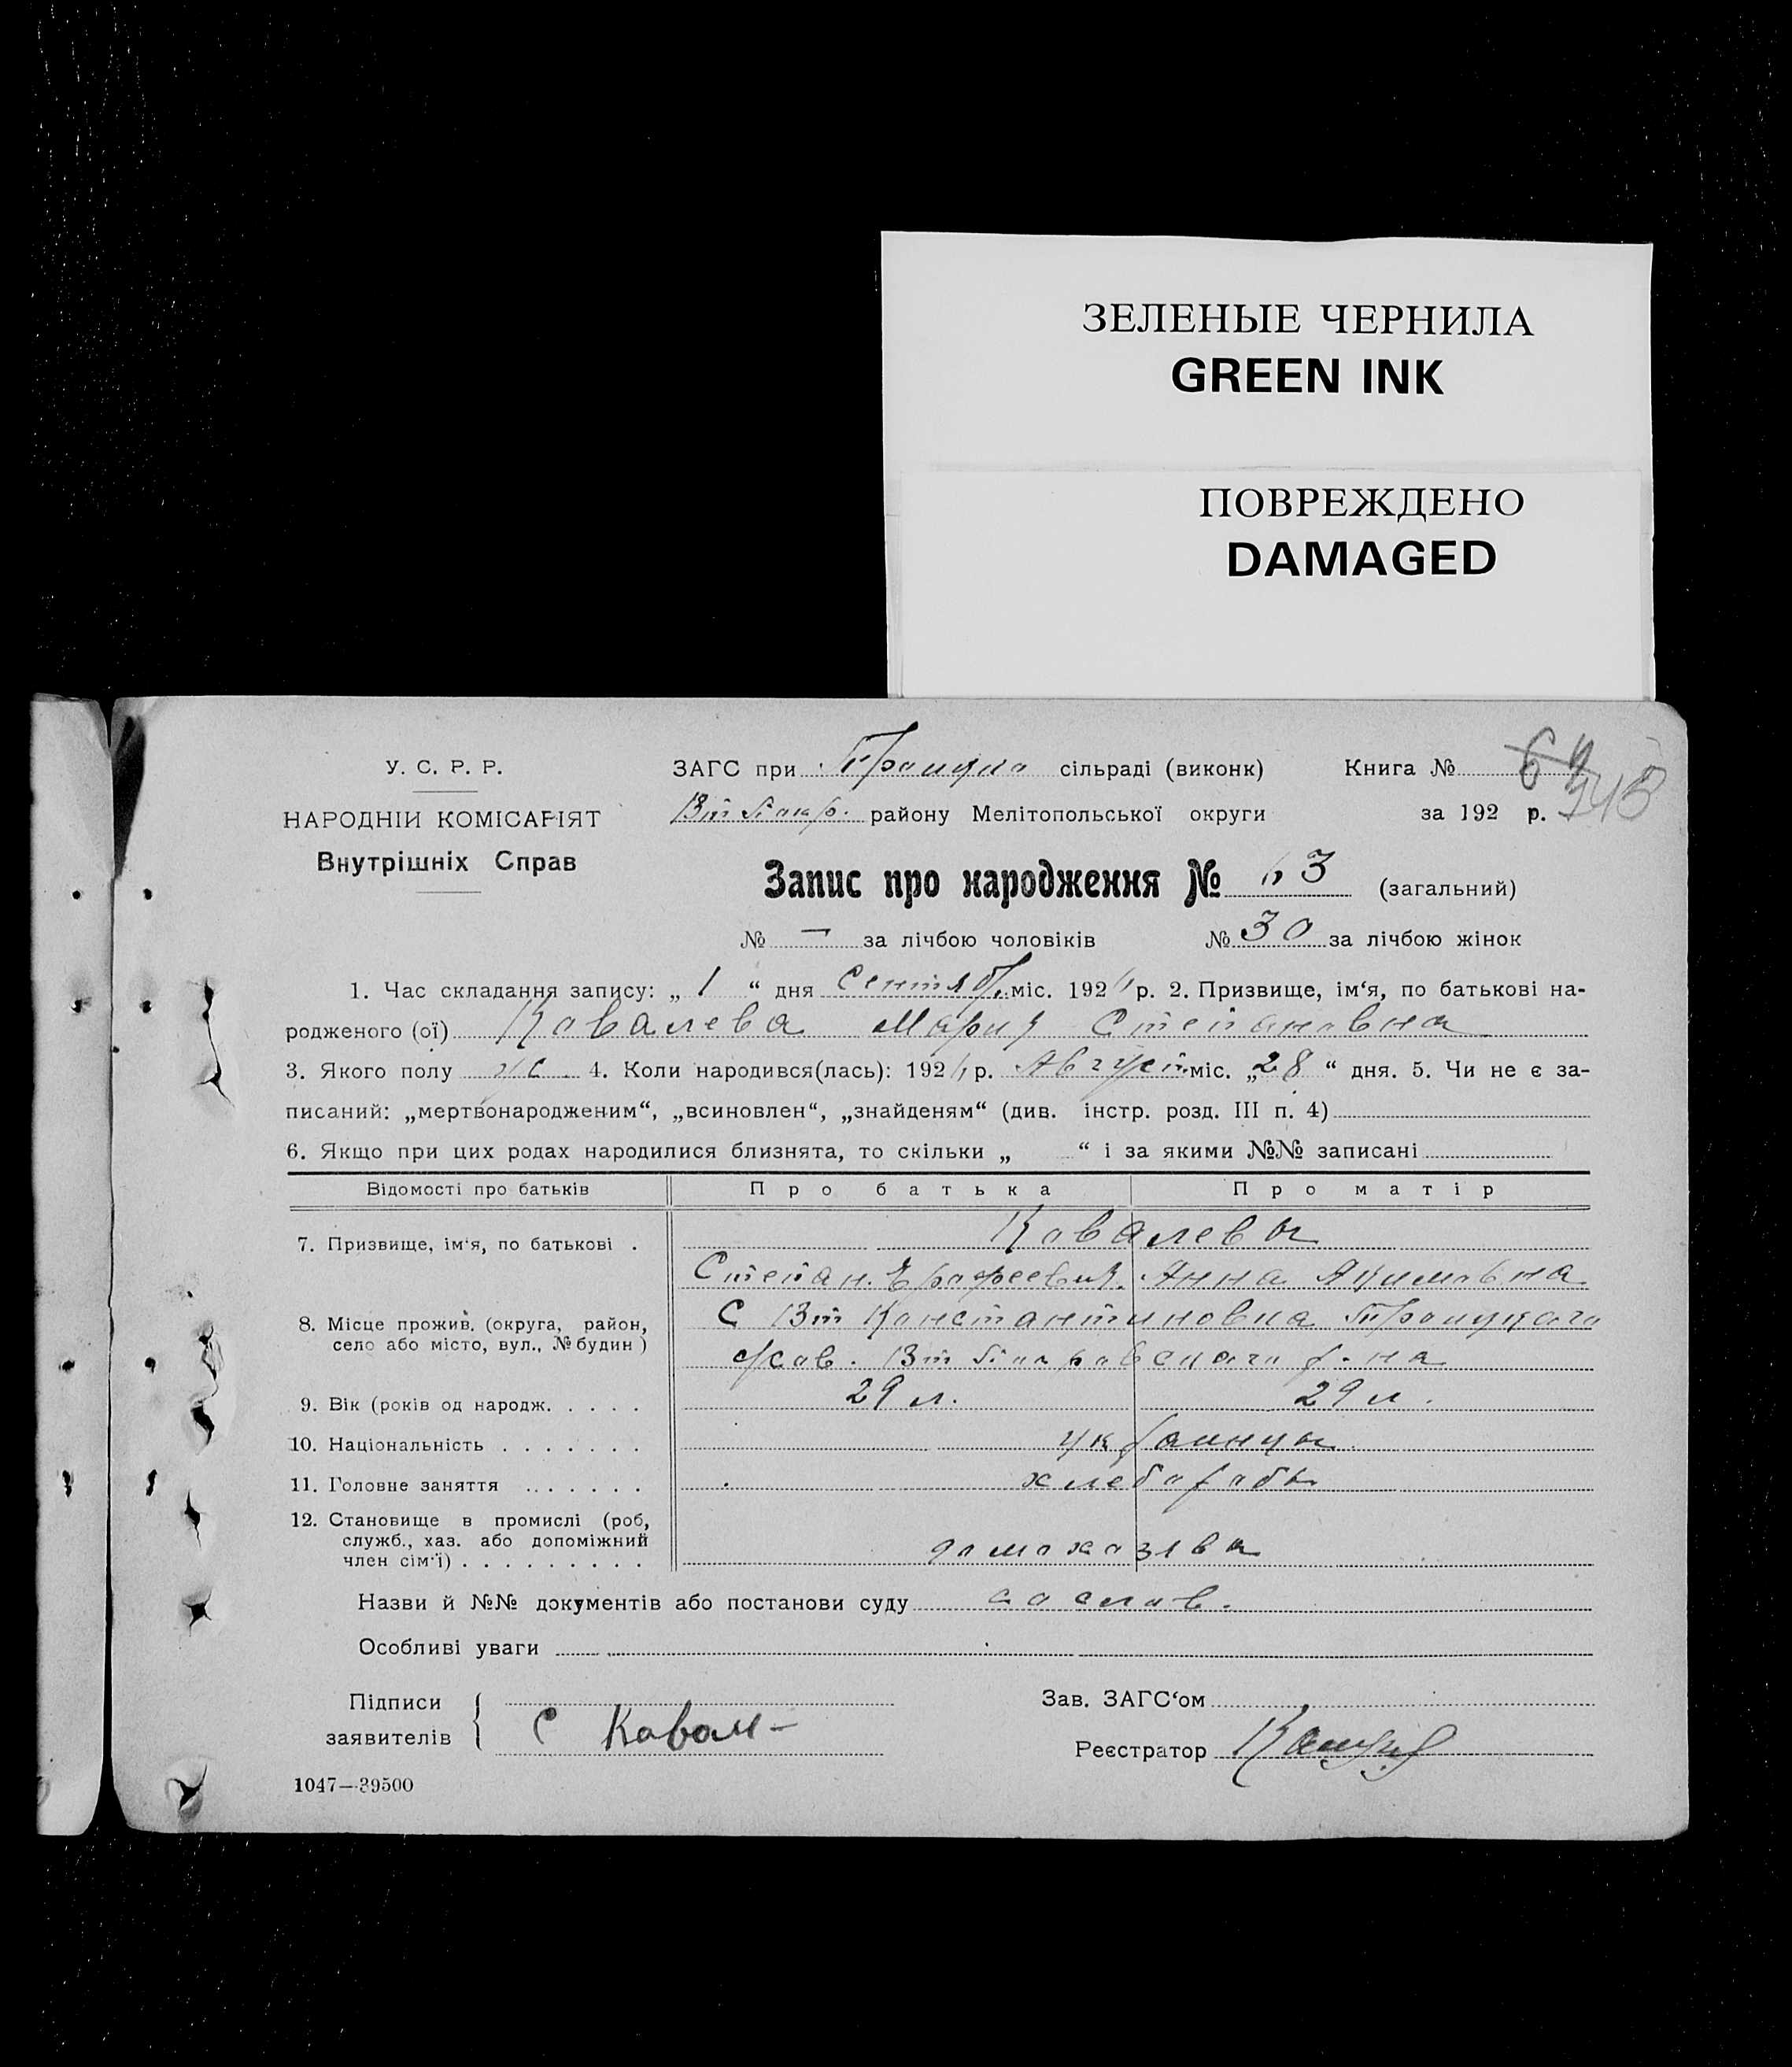 ЗЕЛЕНЫЕ ЧЕРНИЛА
GREEN INK
ПОВРЕЖДЕНО
DAMAGED
У. С. Р. Р.
НАРОДНІИ КОМІСАРІЯТ
Внутрішніх Справ
ЗАГС при сільраді (виконк) Книга №
району Мелітопольської округи за 192 р.
Запис про народження № 63 (загальний)
№ — за лічбою чоловіків № 30 за лічбою жінок
1. Час складання запису: „ 1 “ дня Сентяб. міс. 192 р. 2. Призвище, ім‘я, по батькові на-
родженого (ої) Ковалева Мария Степановна
3. Якого полу ж. 4. Коли народився(лась): 192 р. Август міс. „28 “ дня. 5. Чи не є за-
писаний: „мертвонародженим“, „всиновлен“, „знайденям“ (див. інстр. розд. III п. 4)
6. Якщо при цих родах народилися близнята, то скільки „ “ і за якими №№ записані
Відомості про батьків Про батька Про матір
7. Призвище, ім‘я, по батькові . Ковалевы
Степан Анна Якимовна
8. Місце прожив. (округа, район,
село або місто, вул., № будин )
С Вт Константиновка
р-на
9. Вік (років од народж. . . . . 29 л. 29 л.
10. Національність . . . . . . . украинцы
11. Головне заняття . . . . . . . хлеборобы
12. Становище в промислі (роб,
служб., хаз. або допоміжний
член сім‘ї) . . . . . . . . . домохозяева
Назви й №№ документів або постанови суду со слов.
Особливі уваги
Підписи
заявителів С Ковал-
Зав. ЗАГС‘ом
Реєстратор
1047—39500